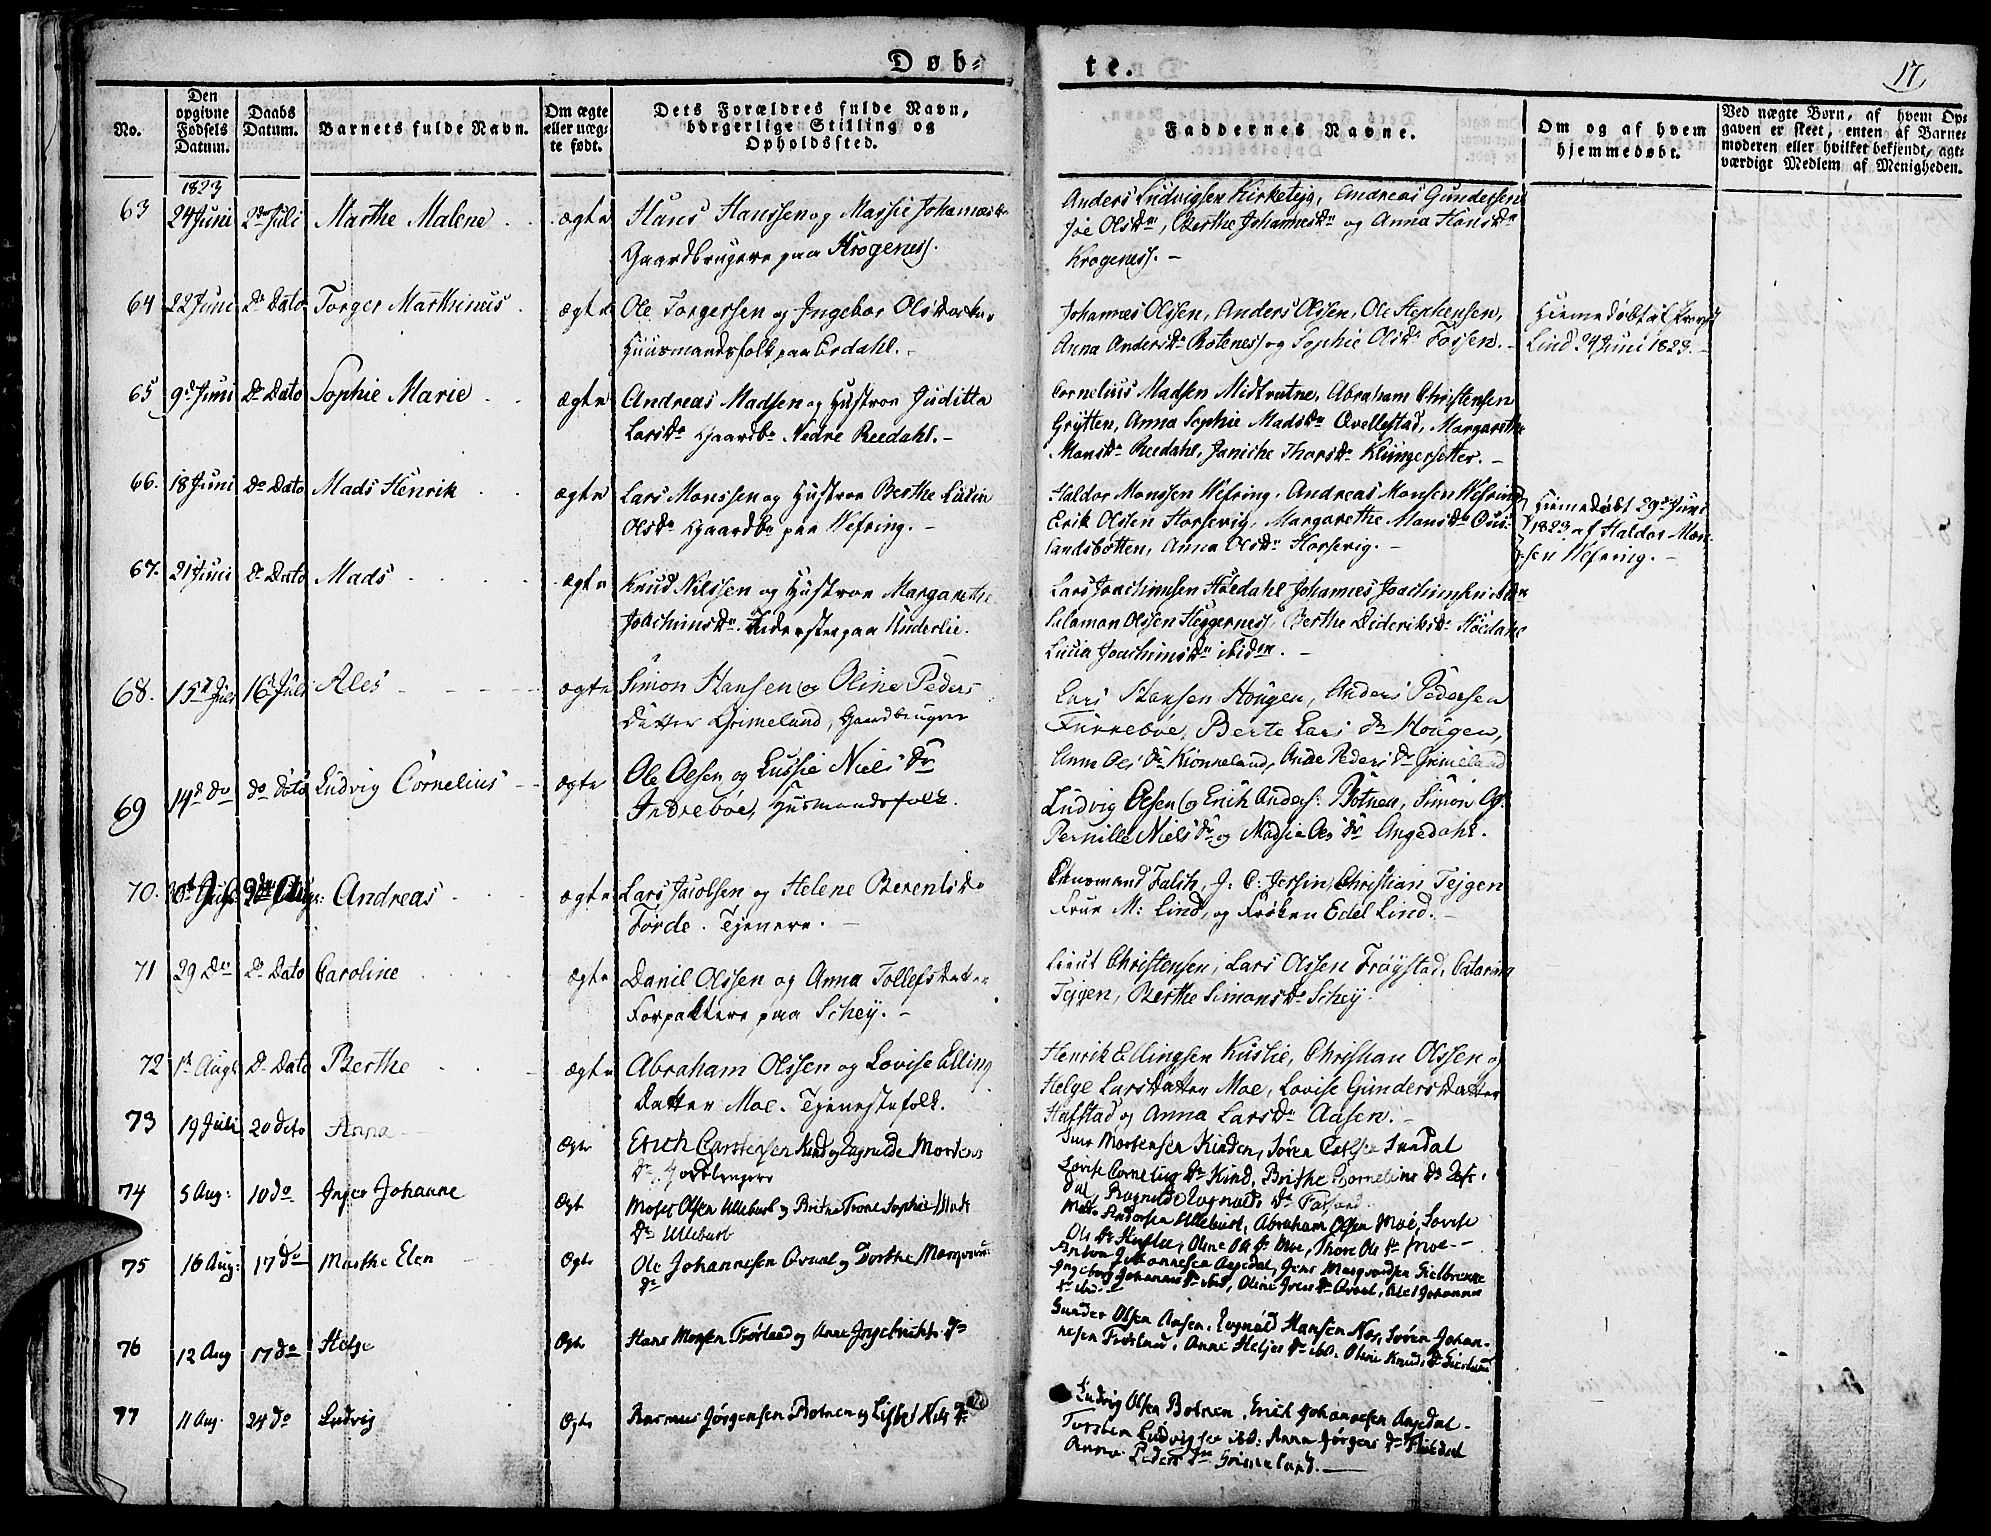 Døb-
te.
17
No.
Den opgivne Fødsels Datum.
Daabs Datum.
Barnets fulde Navn.
Om ægte eller uæg- te født.
Dets Forældres fulde Navn, borgerlige Stilling og Opholdssted.
Faddernes Navne.
Om og af hvem hjemmedøbt.
Ved uægte Børn, af hvem Op- gaven er skeet, enten af Barne- moderen eller hvilket bekjendt, agt- værdigt Medlem af Menigheden.
1823
63 24 Juni 2den Juli Marthe Malene ægte Hans Hanssen og Massie Johannesdr
Gaardbrugere paa Krogeness.
Anders Ludvigsen Kirketeig, Andreas Gundersen
Olsdr, Berthe Johannesdr og Anna Hansdr
Krogeness.
64 22 Juni Do Dato Torger Marthinus ægte Ole Torgersen og Ingebor Olsdatter
Huusmandsfolk paa Erdahl.
Johannes Olssen, Anders Olssen, Ole Stephensen,
Anna Andersdr Rotenes og Sophie Olsdr Fossen.
Hiemedøbt af Provst
Lind 24 Juni 1823.
65 9de Juni Do Dato Sophie Marie ægte Andreas Madsen og Hustroe Juditta
Larsdr Gaardbr Nedre Reedahl.
Cornelius Madsen Midtvatne, Abraham Christensen
Grytten, Anna Sophie Madsdr Qvellestad, Margarethe
Monsdr Reedahl, Janiche Thorsdr Klungersetter.
66. 18 Juni Do Dato Mads Henrik ægte Lars Monssen og Hustroe Berthe Lusin
Olsdr Gaardbr paa Wefring.
Haldor Monssen Wefring, Andreas Monsen Wefring,
Erik Olssen Horsevig, Margarethe Monsdr Ous-
landsbotten, Anna Olsdr Horsevig.
Hiemedøbt 29de Juni
1823 af Haldor Mon-
sen Wefring.
67. 21 Juni Do Dato Mads ægte Knud Nilssen og Hustroe Margarethe
Joachimsdr. paa Underlie.
Lars Joachimsen Høedahl Johannes Joachimsen
Salamon Olssen Heggerness, Berthe Dideriksdr Høedahl
Lucia Joachimsdr ibidem.
68. 15de Juli 16de Juli Ales ægte Simon Hansen og Oline Peders
datter Grimeland, Gaardbrugere
Lars Hansen Hougen, Anders Pedersen
Furreboe, Berte Lars dr Hougen,
Anne Ols dr Kionneland, Peders dr Grimeland
69 14de do do dato Ludvig Cornelius ægte Ole Olsen og Lussie Niels dr
Indrebøe, Husmandsfolk.
Ludvig Olsen og Erich Anders: Botnen, Simon
Pernille Niels dr og Madsie Ols dr Angedahl.
70. Andreas ægte Lars Jacolsen og Helene Berentsdr
Førde. Tjenere.
Falch, J. C. Jersin, Christian Tejgen
Frue M: Lind, og Frøken Edel Lind.
71 29 Do Do Dato Caroline ægte Danil Olssen og Anna Tollefsdatter
Forpaktere paa Schey.
Lieut Christensen, Lars Olssen Frøystad, Catarina
Tejgen, Berthe Simonsdr Schey.
72 1st Augt Do Dato Berthe ægte Abraham Olssen og Lovise Elling
Datter Moe. Tjenestefolk.
Henrik Ellingsen Kuslie, Christian Olssen og
Helge Larsdatter Moe, Lovise Gundersdatter
Hafstad og Anna Larsdr Aasen.
73 19 Juli 20 dto Anna ægte Erich Carstensen Kind og Ragnilde Mortens
dr, Jordbrugere
Mortensen Kinden, Søren Sundal
Lovise Cornelius dr Kind, Brithe Cornelius dr
dal, Ragnilde dr
74 5 Aug: 10 do Inger Johanne ægte Moses Olsen Ullebust og Brithe Trone Sophie Mads
dr Ullebust
Mads Andersen Ullebust, Abraham Olsen Moe, Lovise
Ols dr Kuslie, Oline Ols dr Moe, Thore Ols dr Moe
75 16 Aug: 17 do Marthe Elen ægte Ole Johannesen og Dorthe Marqvard
dr
Johannesen Angedal, Jens Marqvardsen Fielbrekke
Ingeborg Johannes dr ibid, Oline dr, Ales Johannes
dr ibid.
76 12 Aug 17 do Helge ægte Hans Monsen Frøland og Anne Ingebricts dr
Gunder Olsen Aasen, Hansen Næs, Søren Johan-
nesen Frøsland, Anne Heljes dr ibid. Oline Knuds dr
77 11 Aug. 24 do Ludvig ægte Rasmus Jørgensen Botnen og Lisbet Nils dr
Ludvig Olsen Botnen, Erich Johannesen Angedal
Torsten Ludvigsen ibid: Anna Jørgens dr
Anne Peders dr Grimeland.